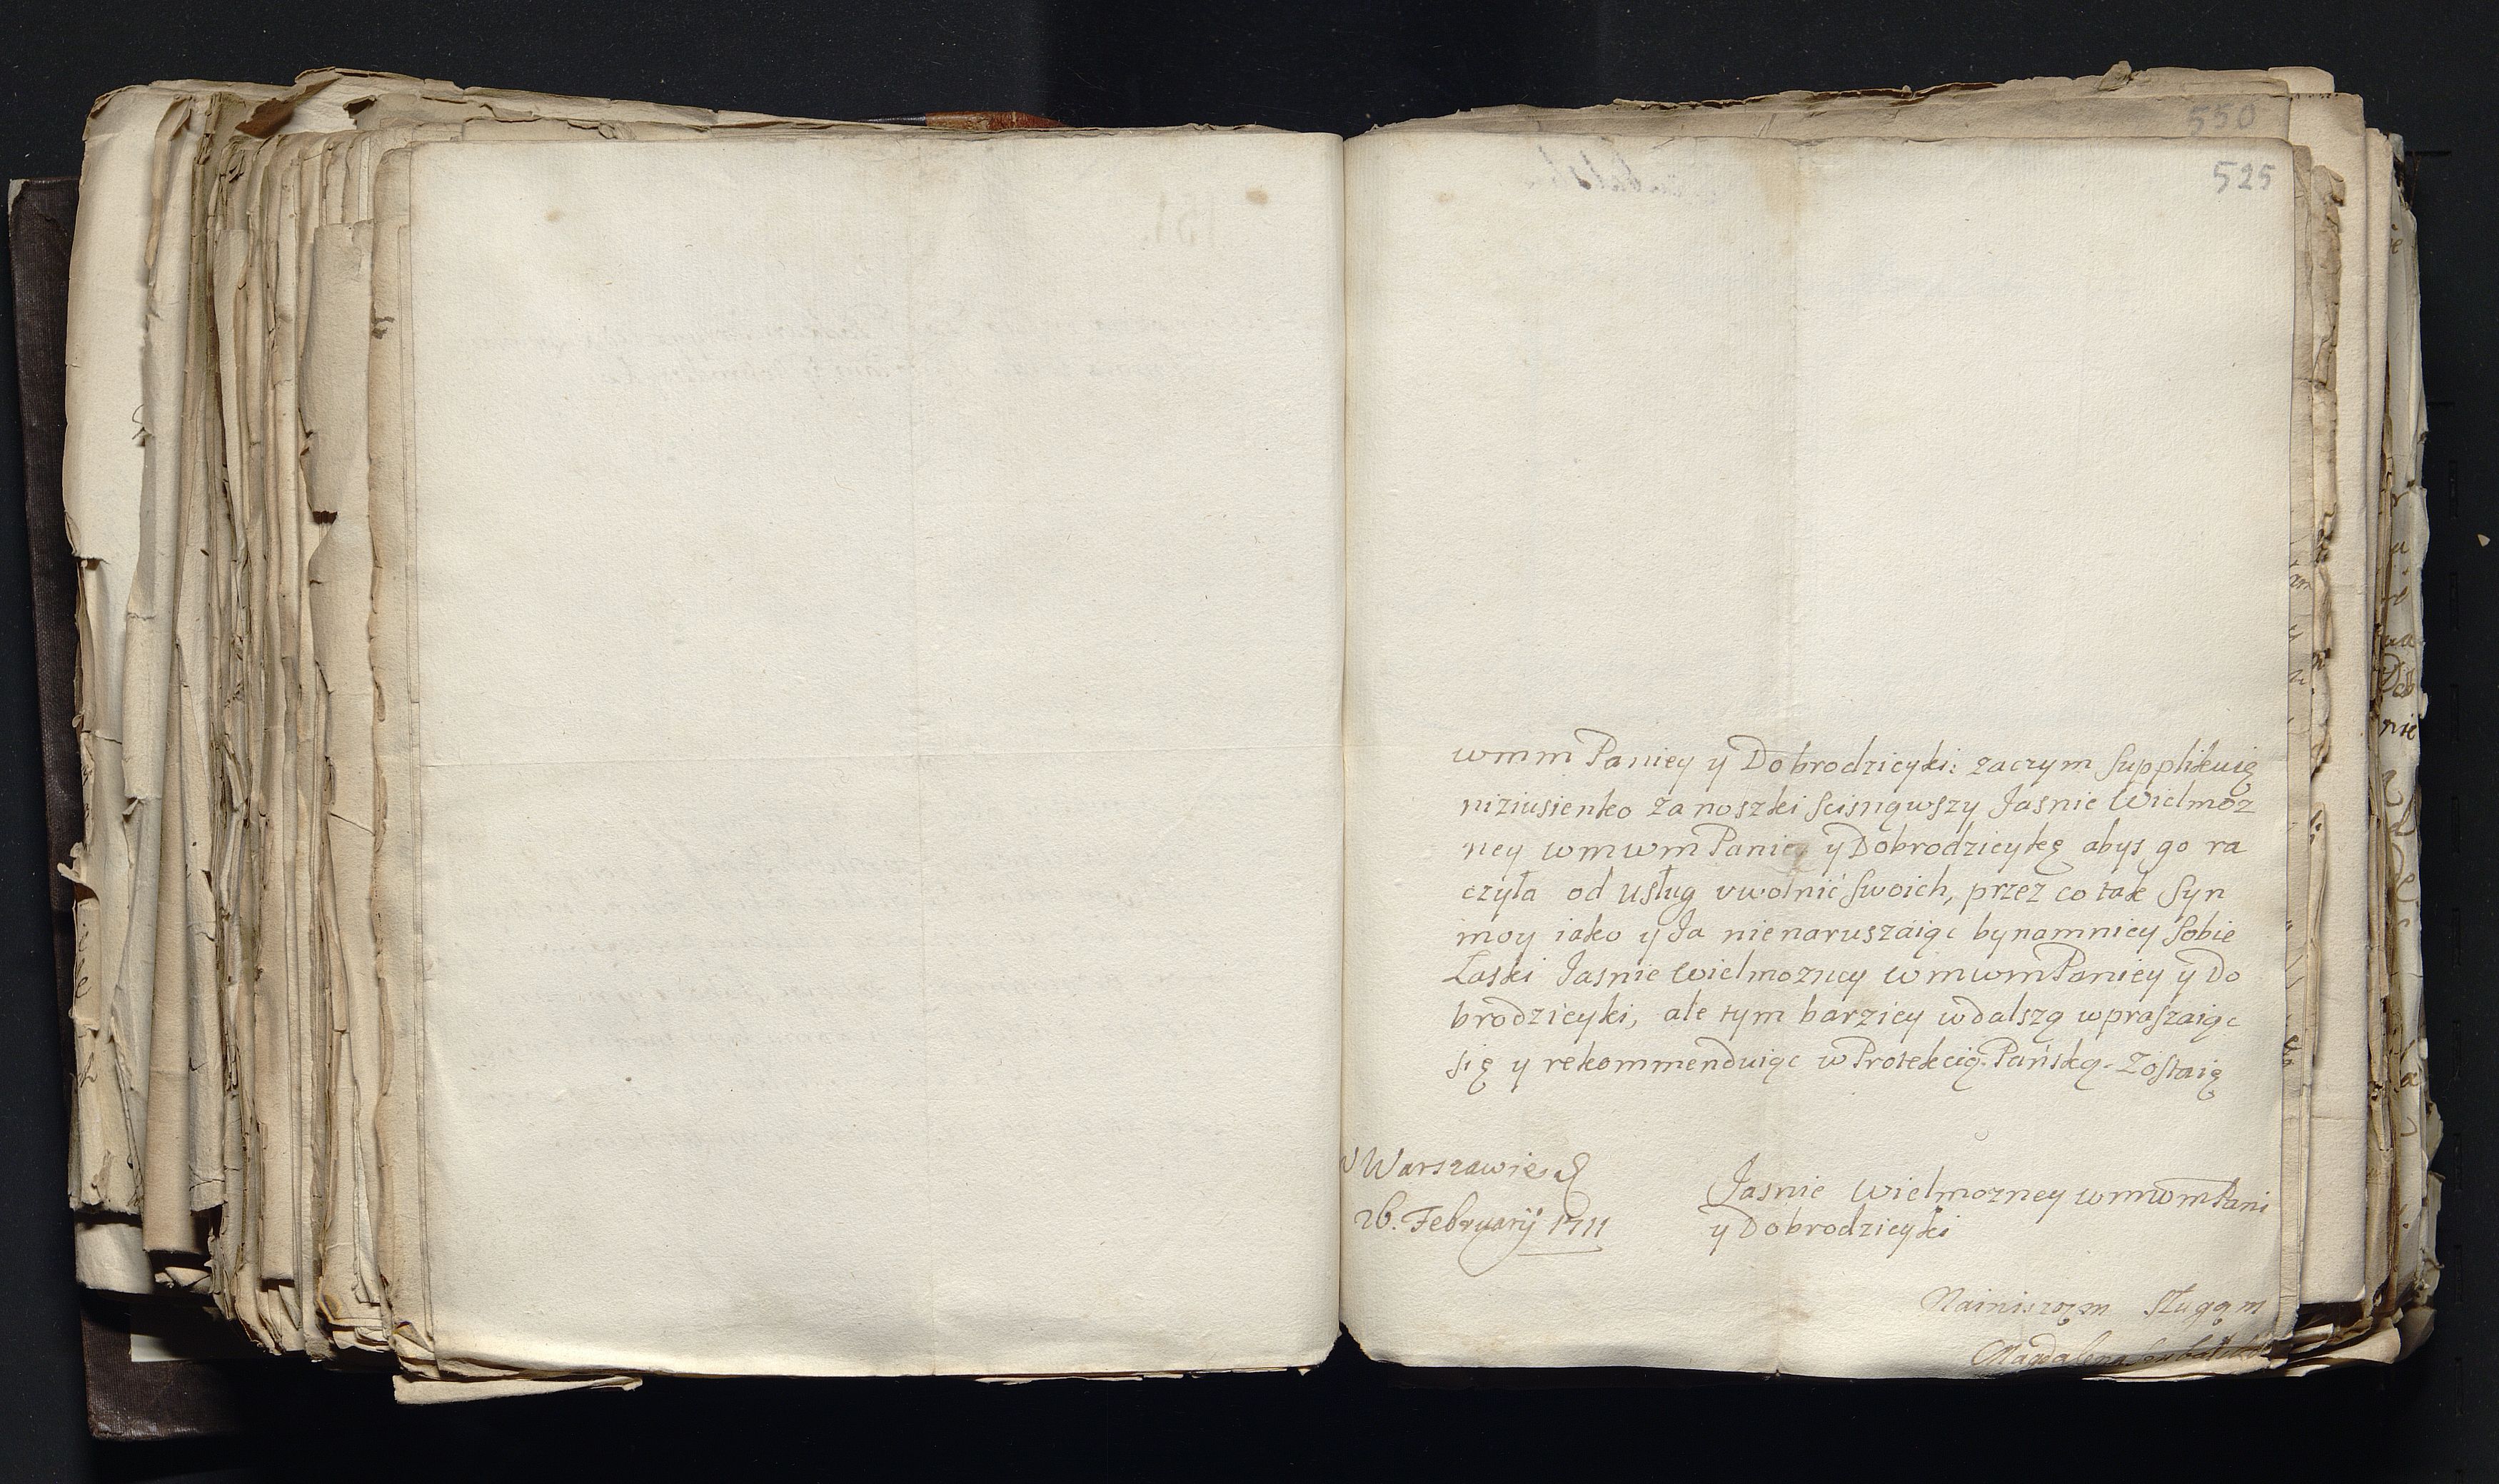 550
525
wmm Paniey y Dobrodzieyki: zaczym supplikuię
niziusienko za noszki scisnąwszy Jasnie Wielmoz
ney wmwm Paniey y Dobrodzieykę abys go ra
czyła od usług uwolnić swoich, przez co tak Syn
moy iako y Ja nienaruszaiąc bynamniey sobie
Łaski Jasnie Wielmozney wmwm Paniey y Do
brodzieyki, ale tym barziey wdalszą wpraszaiąc
się y rekommenduiąc w Protekcią Pańską. Zostaię
w Warszawie d
26. Februarij 1711
Jasnie Wielmozney wmwm Pani
y Dobrodzieyki
Nainiszązm sługąm
Magdalena